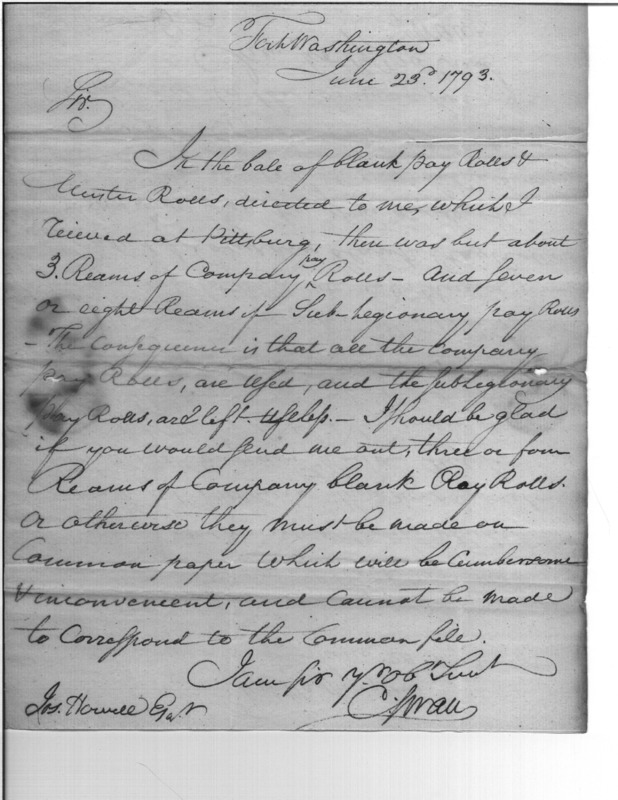 Fort Washington
June 23d. 1793.
Sir.
In the bale of blank pay Rolls &
Muster Rolls, directed to me, which I
reieved at Pittsburg, there was but about
3. Reams of Company pay Rolls – and seven
or eight Reams of Sub-Legionary pay Rolls
– The consequence is that all the Company
pay Rolls, are Used, and the Sublegionary
pay Rolls, are left useless. – I should be glad
if you would send me out, three or four
Reams of Company blank Pay Rolls.
or otherwise they must be made on
Common paper which will be Cumbersome
& inconvenient, and cannot be made
to Correspond to the Common file.
I am Sir yr. ob Servt
C. Swan
Jos. Howell Esqr